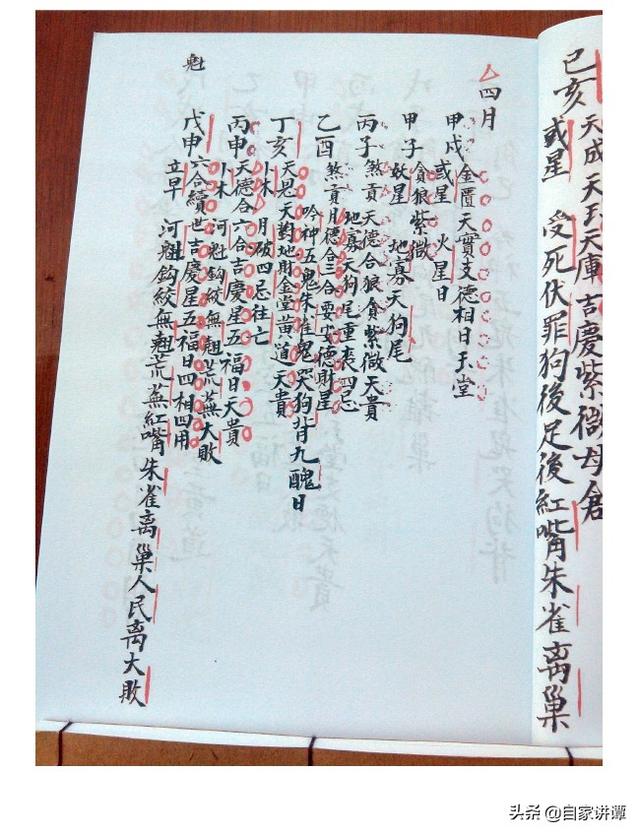 己亥 天成天玉天庫吉慶紫微母倉
或星 受死伏罪狗後足後紅嘴朱雀离巢
四月
甲戌 金匱天貴支德相日天堂
或星 火星日
甲子 貪狼紫微
妖星 地寡天狗尾
丙子 煞貢天德合狼貪紫微天貴
地寡天狗尾重喪四忌
乙酉 煞貢月德合三合要安德財星
吟神五鬼朱雀鬼哭狗背九醜日
丁亥 天恩天對地財金堂黃道天貴
小木 月破四忌往亡
丙申 天德合六合吉慶星五福日天貴
小木 河魁鈎絞無翹荒蕪大敗
戊申 六合續世吉慶星五福日四相四用
立早 河魁鈎絞無翹荒蕪紅嘴朱雀离巢人民离大敗
魁
头条 @自家讲谭